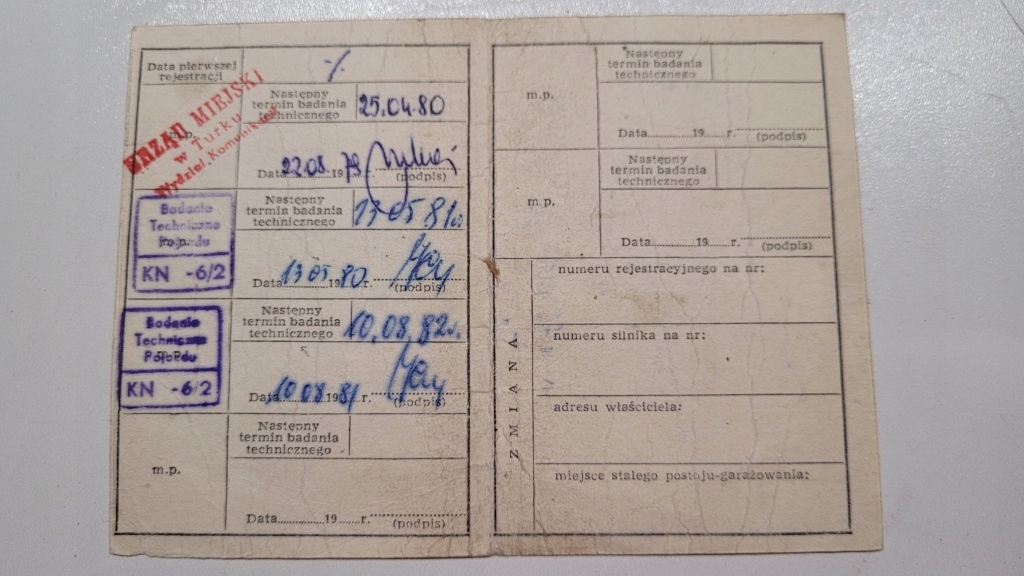 Data pierwszej
rejestracji
-/.
URZĄD MIEJSKI
w Turku
Wydział Komunikacji
m.p.
Następny
termin badania
technicznego
25.04.80
Data 22.08. 1979
(podpis)
Badanie
Techniczne
Pojazdu
m.p.
KN -6/2
Następny
termin badania
technicznego
13 05 81r.
Data 13 05 1980 r.
(podpis)
Badanie
Techniczne
Pojazdu
KN -6/2
Następny
termin badania
technicznego
10.08.82r.
Data 10 08 1981 r.
(podpis)
m.p.
Następny
termin badania
technicznego
Data............19.......r.
(podpis)
m.p.
Następny
termin badania
technicznego
Data............19.......r.
(podpis)
m.p.
Następny
termin badania
technicznego
Data............19.......r.
(podpis)
ZMIANA
numeru rejestracyjnego na nr:
numeru silnika na nr:
adresu właściciela:
miejsce stałego postoju-garażowania: